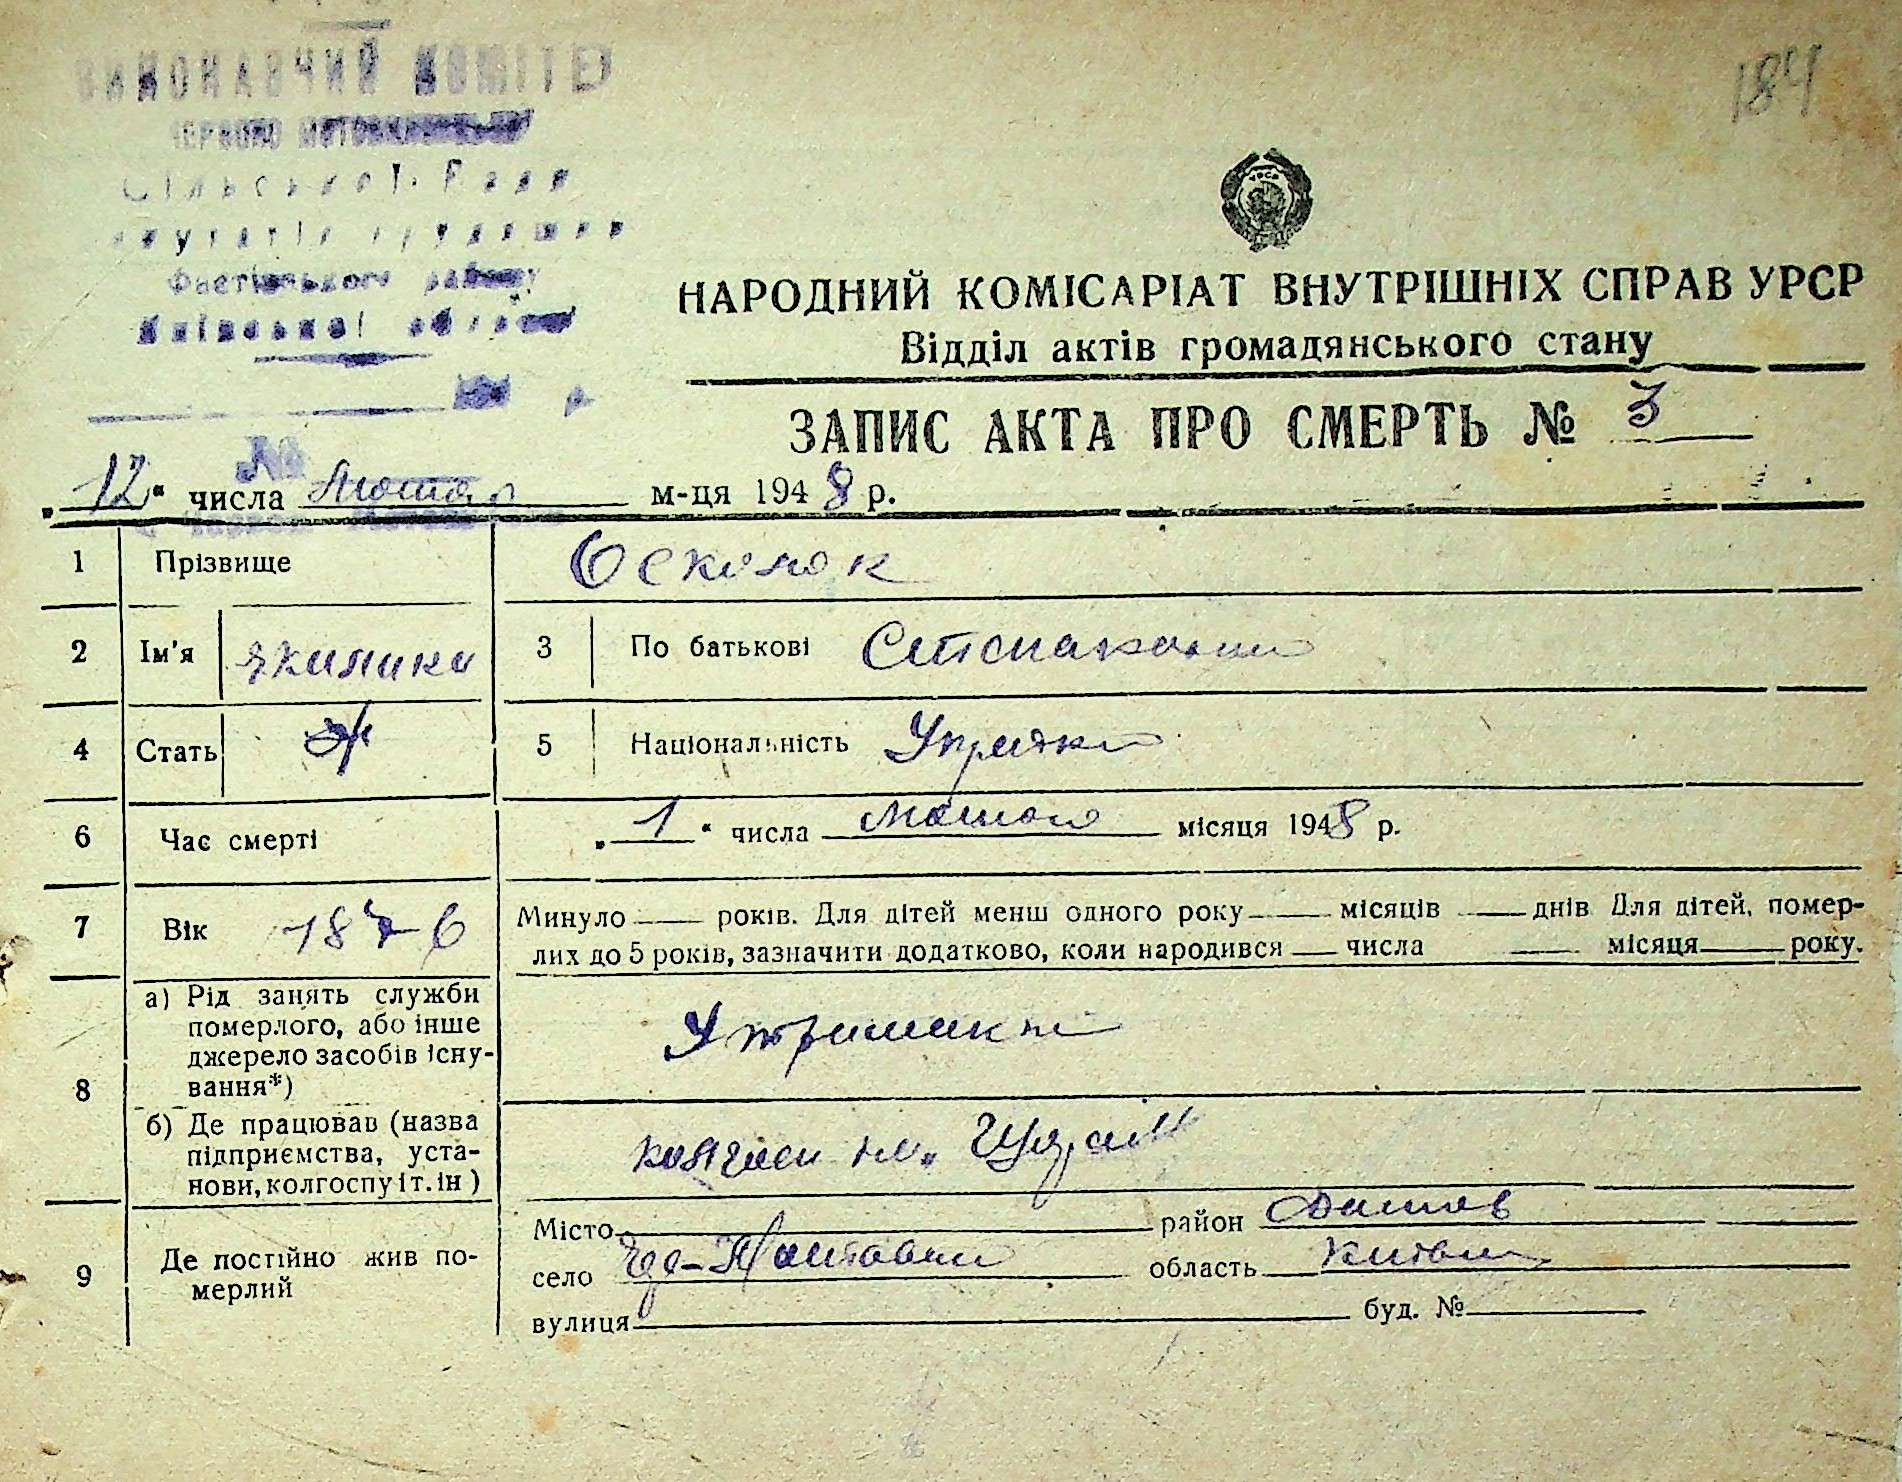 184
ВИКОНАВЧИЙ КОМІТЕТ
Сільської Ради
Фастівського району
Київської області
НАРОДНИЙ КОМІСАРІАТ ВНУТРІШНІХ СПРАВ УРСР
Відділ актів громадянського стану
ЗАПИС АКТА ПРО СМЕРТЬ № 3
№
„12“ числа Лютого м-ця 1948 р.
1 Прізвище Осколок
2 Ім'я 3 По батькові
4 Стать Ж 5 Національність Українка
6 Час смерті „1“ числа Лютого місяця 1948 р.
7 Вік 1876 Минуло — років. Для дітей менш одного року — місяців — днів Для дітей, помер-
лих до 5 років, зазначити додатково, коли народився — числа — місяця — року.
8 а) Рід занять служби
померлого, або інше
джерело засобів існу-
вання*)
Утриманка
б) Де працював (назва
підприємства, уста-
нови, колгоспу і т. ін)
колгосп ім.
9 Де постійно жив по-
мерлий
Місто район Фастів
село область Київськ
вулиця буд. №